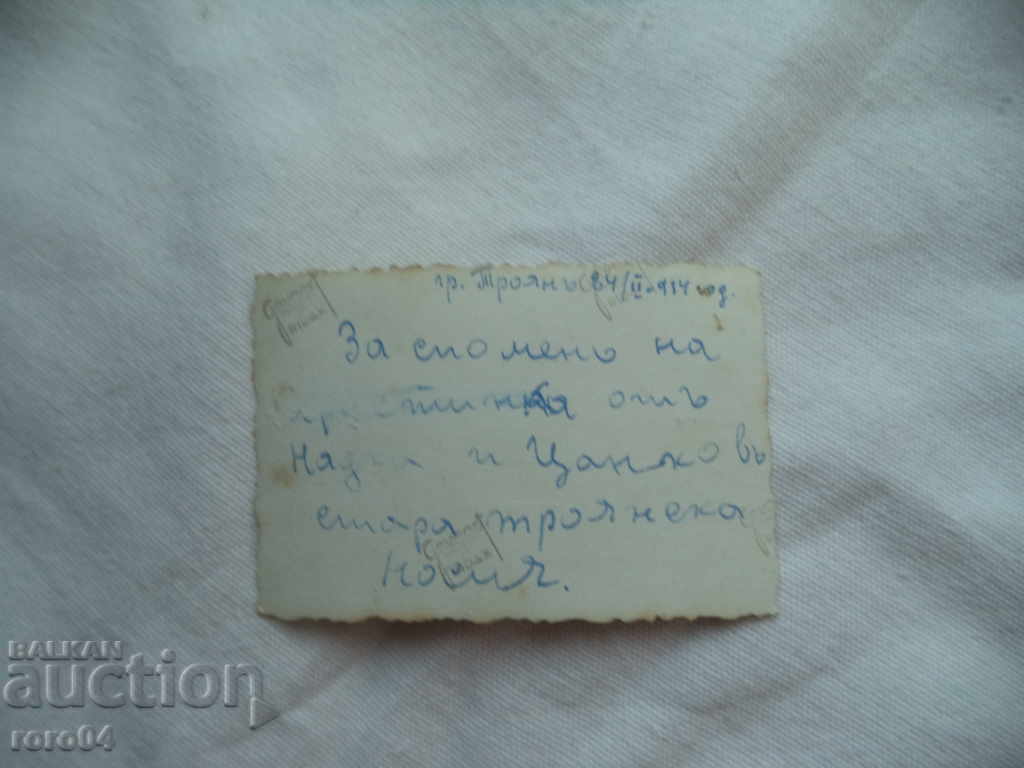 гр. Троянъ 24/II 914 год.
За споменъ на
отъ
Надка и Цанковъ
стара троянска
носия.
BALKAN
auction
roro04